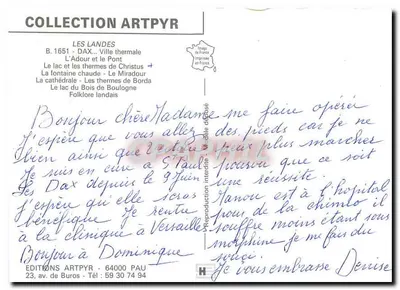 COLLECTION ARTPYR
LES LANDES
B. 1651 - DAX... Ville thermale
L'Adour et le Pont
Le lac et les thermes de Christus
La fontaine chaude - Le Miradour
La cathédrale - Les thermes de Borda
Le lac du Bois de Boulogne
Folklore landais
Bonjour chère Madame
J'espère que vous allez
bien ainsi que
Je suis en cure à St Paul
les Dax depuis le 9 Juin
j'espère qu'elle sera
bénéfique Je rentre
à la clinique à Versaille
Bonjour à Dominique
me faire opérer
des pieds car je ne
peux plus marcher
pourvu que ce soit
une réussite.
Manou est à l'hopital
pour de la chimio il
souffre moins étant sous
morphine je me fais du
souçi
Je vous embrasse Denise
EDITIONS ARTPYR - 64000 PAU
23, av. de Buros - Tél. 59 30 74 94
H